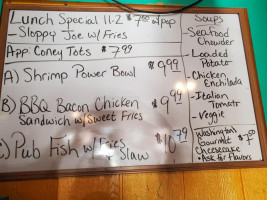 Lunch Special 11-2 $7.00 w/pop
- Sloppy Joe w/ Fries
App: Coney Tots $7.99
A) Shrimp Power Bowl $9.99
B) BBQ Bacon Chicken $9.99
Sandwich w/ Sweet Fries
C) Pub Fish w/ Fries & Slaw $10.79
Soups
- Seafood
Chowder
- Loaded
Potato
- Chicken
Enchilada
- Italian
Tomato
- Veggie
Washington
Gourmet
Cheesecake
* Ask for Flavors